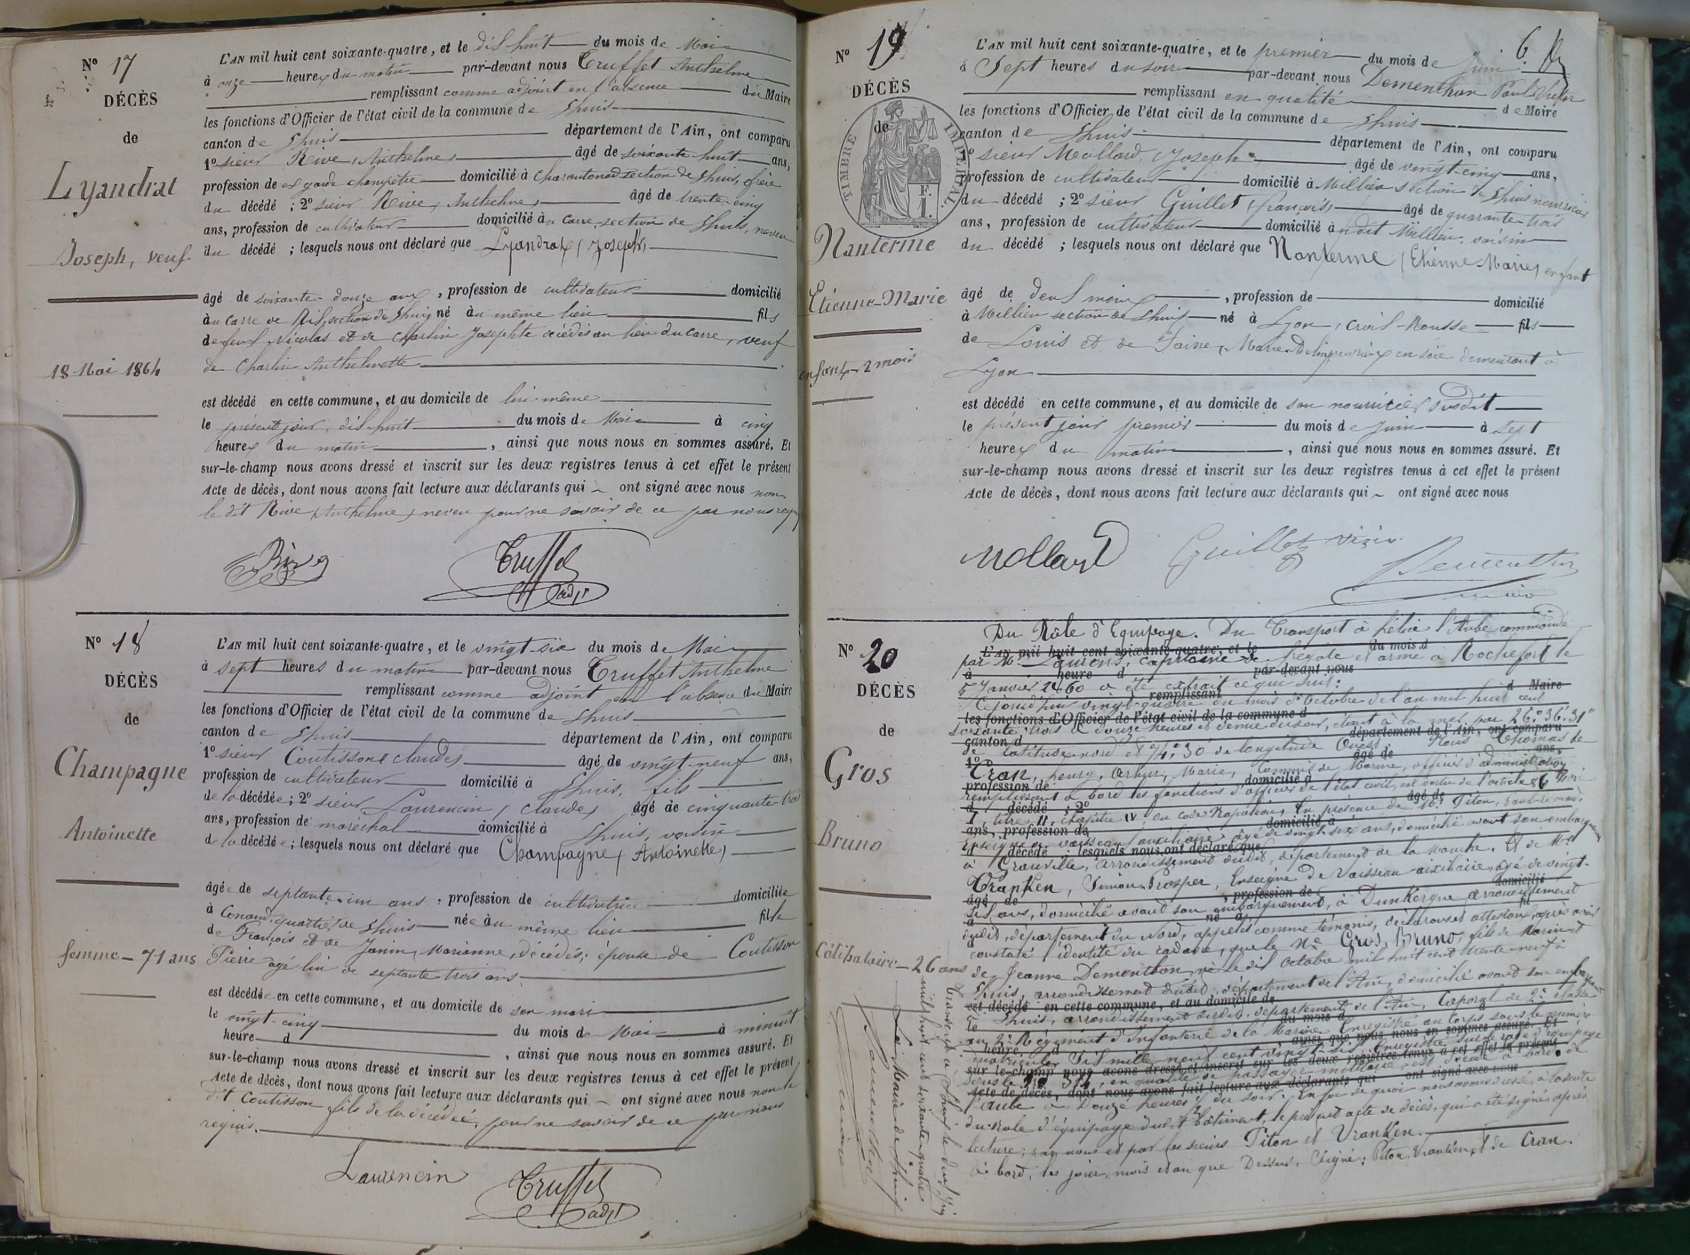 N° 17
DÉCÈS
de
Lyandrat
Joseph, veuf.
18 Mai 1864
L'AN mil huit cent soixante-quatre, et le dis huit du mois de Mai
à onze heures du matin par-devant nous Truffet Anthelme
remplissant comme adjoint en l'absence du Maire
les fonctions d'Officier de l'état civil de la commune de Lhuis
canton de Lhuis département de l'Ain, ont comparu
1° sieur Rive, Anthelme, âgé de soixante huit ans,
profession de garde champêtre domicilié à section de Lhuis, frère
du décédé ; 2° sieur Rive, Anthelme, âgé de trente cinq
ans, profession de cultivateur domicilié au Carre section de Lhuis, neveu
du décédé ; lesquels nous ont déclaré que Lyandrat, Joseph
âgé de soixante douze ans, profession de cultivateur domicilié
au Carre section de Lhuis né au même lieu fils
de feus Nicolas et de Charlin Josephte décédés au lieu du Carre, veuf
de Charlin Anthelmette
est décédé en cette commune, et au domicile de lui-même
le présent jour, dis huit du mois de Mai à cinq
heures du matin, ainsi que nous nous en sommes assuré. Et
sur-le-champ nous avons dressé et inscrit sur les deux registres tenus à cet effet le présent
Acte de décès, dont nous avons fait lecture aux déclarants qui ont signé avec nous non
le dit Rive Anthelme, neveu pour ne savoir de ce par nous requis
Rive Truffet adjt
N° 18
DÉCÈS
de
Champagne
Antoinette
femme - 71 ans
L'AN mil huit cent soixante-quatre, et le vingt six du mois de Mai
à sept heures du matin par-devant nous Truffet Anthelme
remplissant comme adjoint en l'absence du Maire
les fonctions d'Officier de l'état civil de la commune de Lhuis
canton de Lhuis département de l'Ain, ont comparu
1° sieur Coutisson claude, âgé de vingt-neuf ans,
profession de cultivateur domicilié à Lhuis, fils
de la décédée ; 2° sieur Laurencin, Claude, âgé de cinquante trois
ans, profession de maréchal domicilié à Lhuis, voisin
de la décédée ; lesquels nous ont déclaré que Champagne, Antoinette,
âgée de septante-un ans, profession de cultivatrice domiciliée
à Conand, quartier de Lhuis née au même lieu fille
de François et de Janin, Marianne, décédés ; épouse de Coutisson
Pierre agé lui de septante trois ans
est décédée en cette commune, et au domicile de son mari
le vingt-cinq du mois de Mai à minuit
heure d , ainsi que nous nous en sommes assuré. Et
sur-le-champ nous avons dressé et inscrit sur les deux registres tenus à cet effet le présent
Acte de décès, dont nous avons fait lecture aux déclarants qui ont signé avec nous non le
dit Coutisson fils de la décédée, pour ne savoir de ce par nous
requis.
Laurencin Truffet adjt
6
N° 19
DÉCÈS
de
TIMBRE IMPÉRIAL
F.
1.
Nanterme
Etienne-Marie
enfant 2 mois
L'AN mil huit cent soixante-quatre, et le premier du mois de Juin
à Sept heures du soir par-devant nous Dementhon Paul Victor
remplissant en qualité de Maire
les fonctions d'Officier de l'état civil de la commune de Lhuis
canton de Lhuis département de l'Ain, ont comparu
1° sieur Mollard, Joseph, âgé de vingt-cinq ans,
profession de cultivateur domicilié à Millieu section de Lhuis nourricier
du décédé ; 2° sieur Guillot, françois âgé de quarante-trois
ans, profession de cultivateur domicilié au dit Millieu, voisin
du décédé ; lesquels nous ont déclaré que Nanterme, Etienne-Marie, enfant
âgé de deux mois, profession de domicilié
à Millieu section de Lhuis né à Lyon, Croix-Rousse fils
de Louis et de Marie en soie demeurant à
Lyon
est décédé en cette commune, et au domicile de son nourricier susdit
le présent jour premier du mois de Juin à Sept
heures du matin, ainsi que nous nous en sommes assuré. Et
sur-le-champ nous avons dressé et inscrit sur les deux registres tenus à cet effet le présent
Acte de décès, dont nous avons fait lecture aux déclarants qui ont signé avec nous
Mollard Guillot Dementhon
N° 20
DÉCÈS
de
Gros
Bruno
Célibataire - 26 ans
Du Rôle d'Equipage. Du Transport à hélice l'Aube commandé
par Mr Laurens, capitaine de frégate et armé à Rochefort le
5 Janvier 1860 a été extrait ce qui suit :
Aujourd'hui vingt-quatre du mois d'Octobre de l'an mil huit cent
soixante trois à douze heures et demie du soir, étant à la mer par 26° 36' 31"
de latitude nord et 74° 30 de longitude Ouest. Nous Thomas de
Cran, henry, Arthur, Marie, Commis de Marine, officier d'administration
remplissant à bord les fonctions d'officier de l'état civil, en vertu de l'article 86
titre II, chapitre IV du code Napoléon, En présence de MM. Piton,
Enseigne de vaisseau auxiliaire, âgé de vingt-six ans, domicilié avant son embarquement
à Granville, arrondissement dudit, département de la Manche. Et de Mr
Vranken, Simon Prosper, Enseigne de Vaisseau auxiliaire, âgé de vingt-
six ans, domicilié avant son embarquement, à Dunkerque arrondissement
dudit, département du Nord, appelés comme témoins, déclarons et attestons, après avoir
constaté l'identité du cadavre, que le Né Gros, Bruno, fils de
de Jeanne Dementhon, né le dix octobre mil huit cent trente-sept à
Lhuis, arrondissement dudit, département de l'Ain, domicilié avant son embarquement
à Lhuis, arrondissement dudit, département de l'Ain, Caporal de 2e classe
au 2e Régiment d'Infanterie de la Marine, Enregistré au corps sous le numéro
matricule Dix mille neuf cent vingt
l'Aube à Douze heures du soir. En foi de quoi nous avons dressé, à la suite
du rôle d'équipage dudit bâtiment, le présent acte de décès, qui a été signé, après
lecture, par nous et par les sieurs Piton et Vranken.
à bord, les jour, mois et an que Dessus. Signé : Piton Vranken, T de Cran.
Le Maire de Lhuis